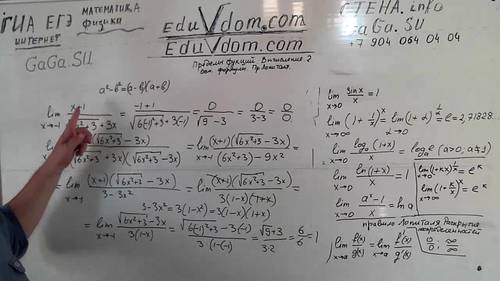 ГИА ЕГЭ
МАТЕМАТИКА
физика
ИНТЕРНЕТ
GaGa.SU
EduVdom.com
EduVdom.com
Пределы функций Вычисления 2
осн. формулы. Пр. Лопиталя.
СТЕНА.info
GaGa.SU
+7 904 064 04 04
a²-b²=(a-b)(a+b)
lim x→-1 x+1 / √6x²+3+3x = -1+1 / √6(-1)²+3+3(-1) = 0 / √9-3 = 0 / 3-3 = 0/0
(√6x²+3-3x) / (√6x²+3+3x)(√6x²+3-3x) = lim x→-1 (x+1)(√6x²+3-3x) / (6x²+3)-9x² =
= lim x→-1 (x+1)(√6x²+3-3x) / 3-3x² = lim x→-1 (x+1)(√6x²+3-3x) / 3(1-x)(1+x) =
3-3x²=3(1-x²)=3(1-x)(1+x)
= lim x→-1 √6x²+3-3x / 3(1-x) = √6(-1)²+3-3(-1) / 3(1-(-1)) = √9+3 / 3·2 = 6/6 = 1
lim x→0 sinx/x = 1
lim x→∞ (1+1/x)^x = lim α→0 (1+α)^(1/α) = e = 2,71828
lim x→0 log_a(1+x)/x = log_a e (a>0, a≠1)
lim x→0 ln(1+x)/x = 1
lim x→0 (1+kx)^(1/x) = e^k
lim x→∞ (1+k/x)^x = e^k
lim x→0 a^x-1/x = ln a
правило Лопиталя Раскрытие
неопределенностей
lim x→a f(x)/g(x) = lim x→a f'(x)/g'(x)
0/0 ; ∞/∞